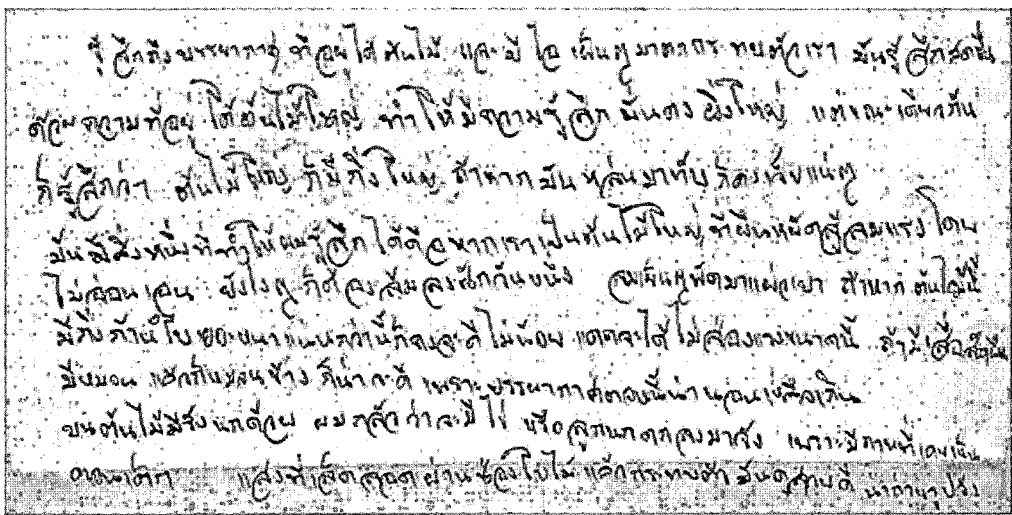 รู้สึกถึงบรรยากาศที่อยู่ใต้ต้นไม้ และมีไอเย็นๆมาตกกระทบตัวเรา มันรู้สึกสดชื่น
ด้วยความที่อยู่ใต้ต้นไม้ใหญ่ ทำให้มีความรู้สึกมั่นคง ยิ่งใหญ่ แต่ขณะเดียวกัน
ก็รู้สึกว่า ต้นไม้ใหญ่ ก็มีกิ่งใหญ่ ถ้าหากมันหล่นมาทับก็คงเจ็บแน่ๆ
มันมีสิ่งหนึ่งที่ทำให้ผมรู้สึกได้คือหากเราเป็นต้นไม้ใหญ่ ที่ยืนหยัดสู้ลมแรงโดย
ไม่อ่อนเอน ยังไงๆก็ต้องล้มลงสักวันหนึ่ง ลมเย็นๆพัดมาแผ่วเบา ถ้าหากต้นไม้นี้
มีกิ่งก้านใบเยอะหนาแน่นกว่านี้ก็คงจะดีไม่น้อย แดดจะได้ไม่ส่องลงขนาดนี้ ถ้ามีเสื่อสักผืน
มีหมอน แล้วก็หมอนข้าง ก็น่าจะดี เพราะบรรยากาศตรงนี้น่านอนเหลือเกิน
บนต้นไม้มีรังนกด้วย ผมกลัวว่าจะมีไข่ หรือลูกนกตกลงมาจัง เพราะมีภาพที่เคยเห็น
ตอนเด็กๆ แสงที่เล็ดลอดผ่านช่องใบไม้ แล้วกระทบตา มันดูสวยดี น่าถ่ายรูปจัง